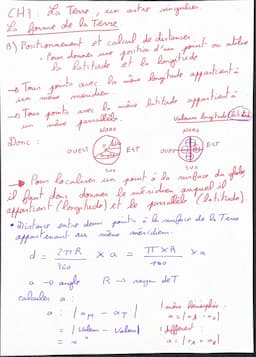 CH3 : La Terre, un astre singulier.
La forme de la Terre
B) Positionnement et calcul de distances
- Pour donner une position d'un point on utilise
la latitude et la longitude
→ Tous points avec la même longitude appartient à
un même méridien.
→ Tous points avec la même latitude appartient à
un même parallèle.
Valeurs longitude/latitude
Donc :
NORD NORD
OUEST EST OUEST EST
SUD SUD
→ Pour localiser un point à la surface du globe
il faut donc donner le méridien auquel il
appartient (longitude) et le parallèle (latitude).
• Distance entre deux points à la surface de la Terre
appartenant au même méridien.
d = 2πR/360 × a = π×R/180 × a
a → angle R → rayon de T
calculer a :
a : |aM - aT|
= | Valeur - Valeur|
= x °
! même hémisphère :
! différent :